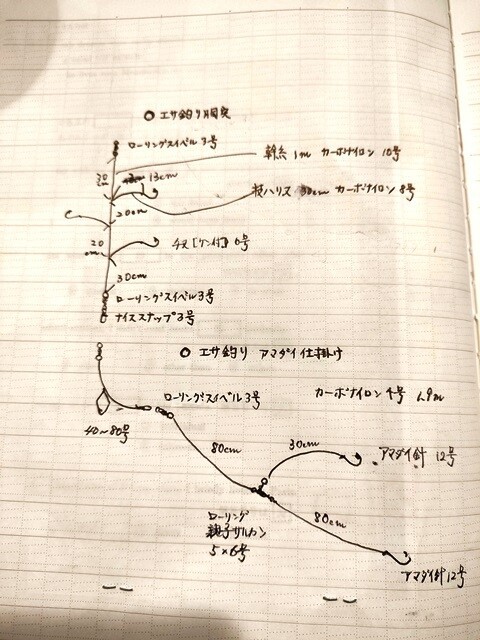 ○ エサ釣り胴突
ローリングスイベル3号
幹糸 1m カーボナイロン 10号
30cm
13cm
枝ハリス 30cm カーボナイロン 8号
20cm
20cm
チヌ[ケン付] 6号
30cm
ローリングスイベル3号
ナイススナップ3号
○ エサ釣り アマダイ仕掛け
ローリングスイベル3号
カーボナイロン 4号 1.9m
40~80号
80cm
30cm
アマダイ針 12号
ローリング
親子サルカン
5×6号
80cm
アマダイ針12号